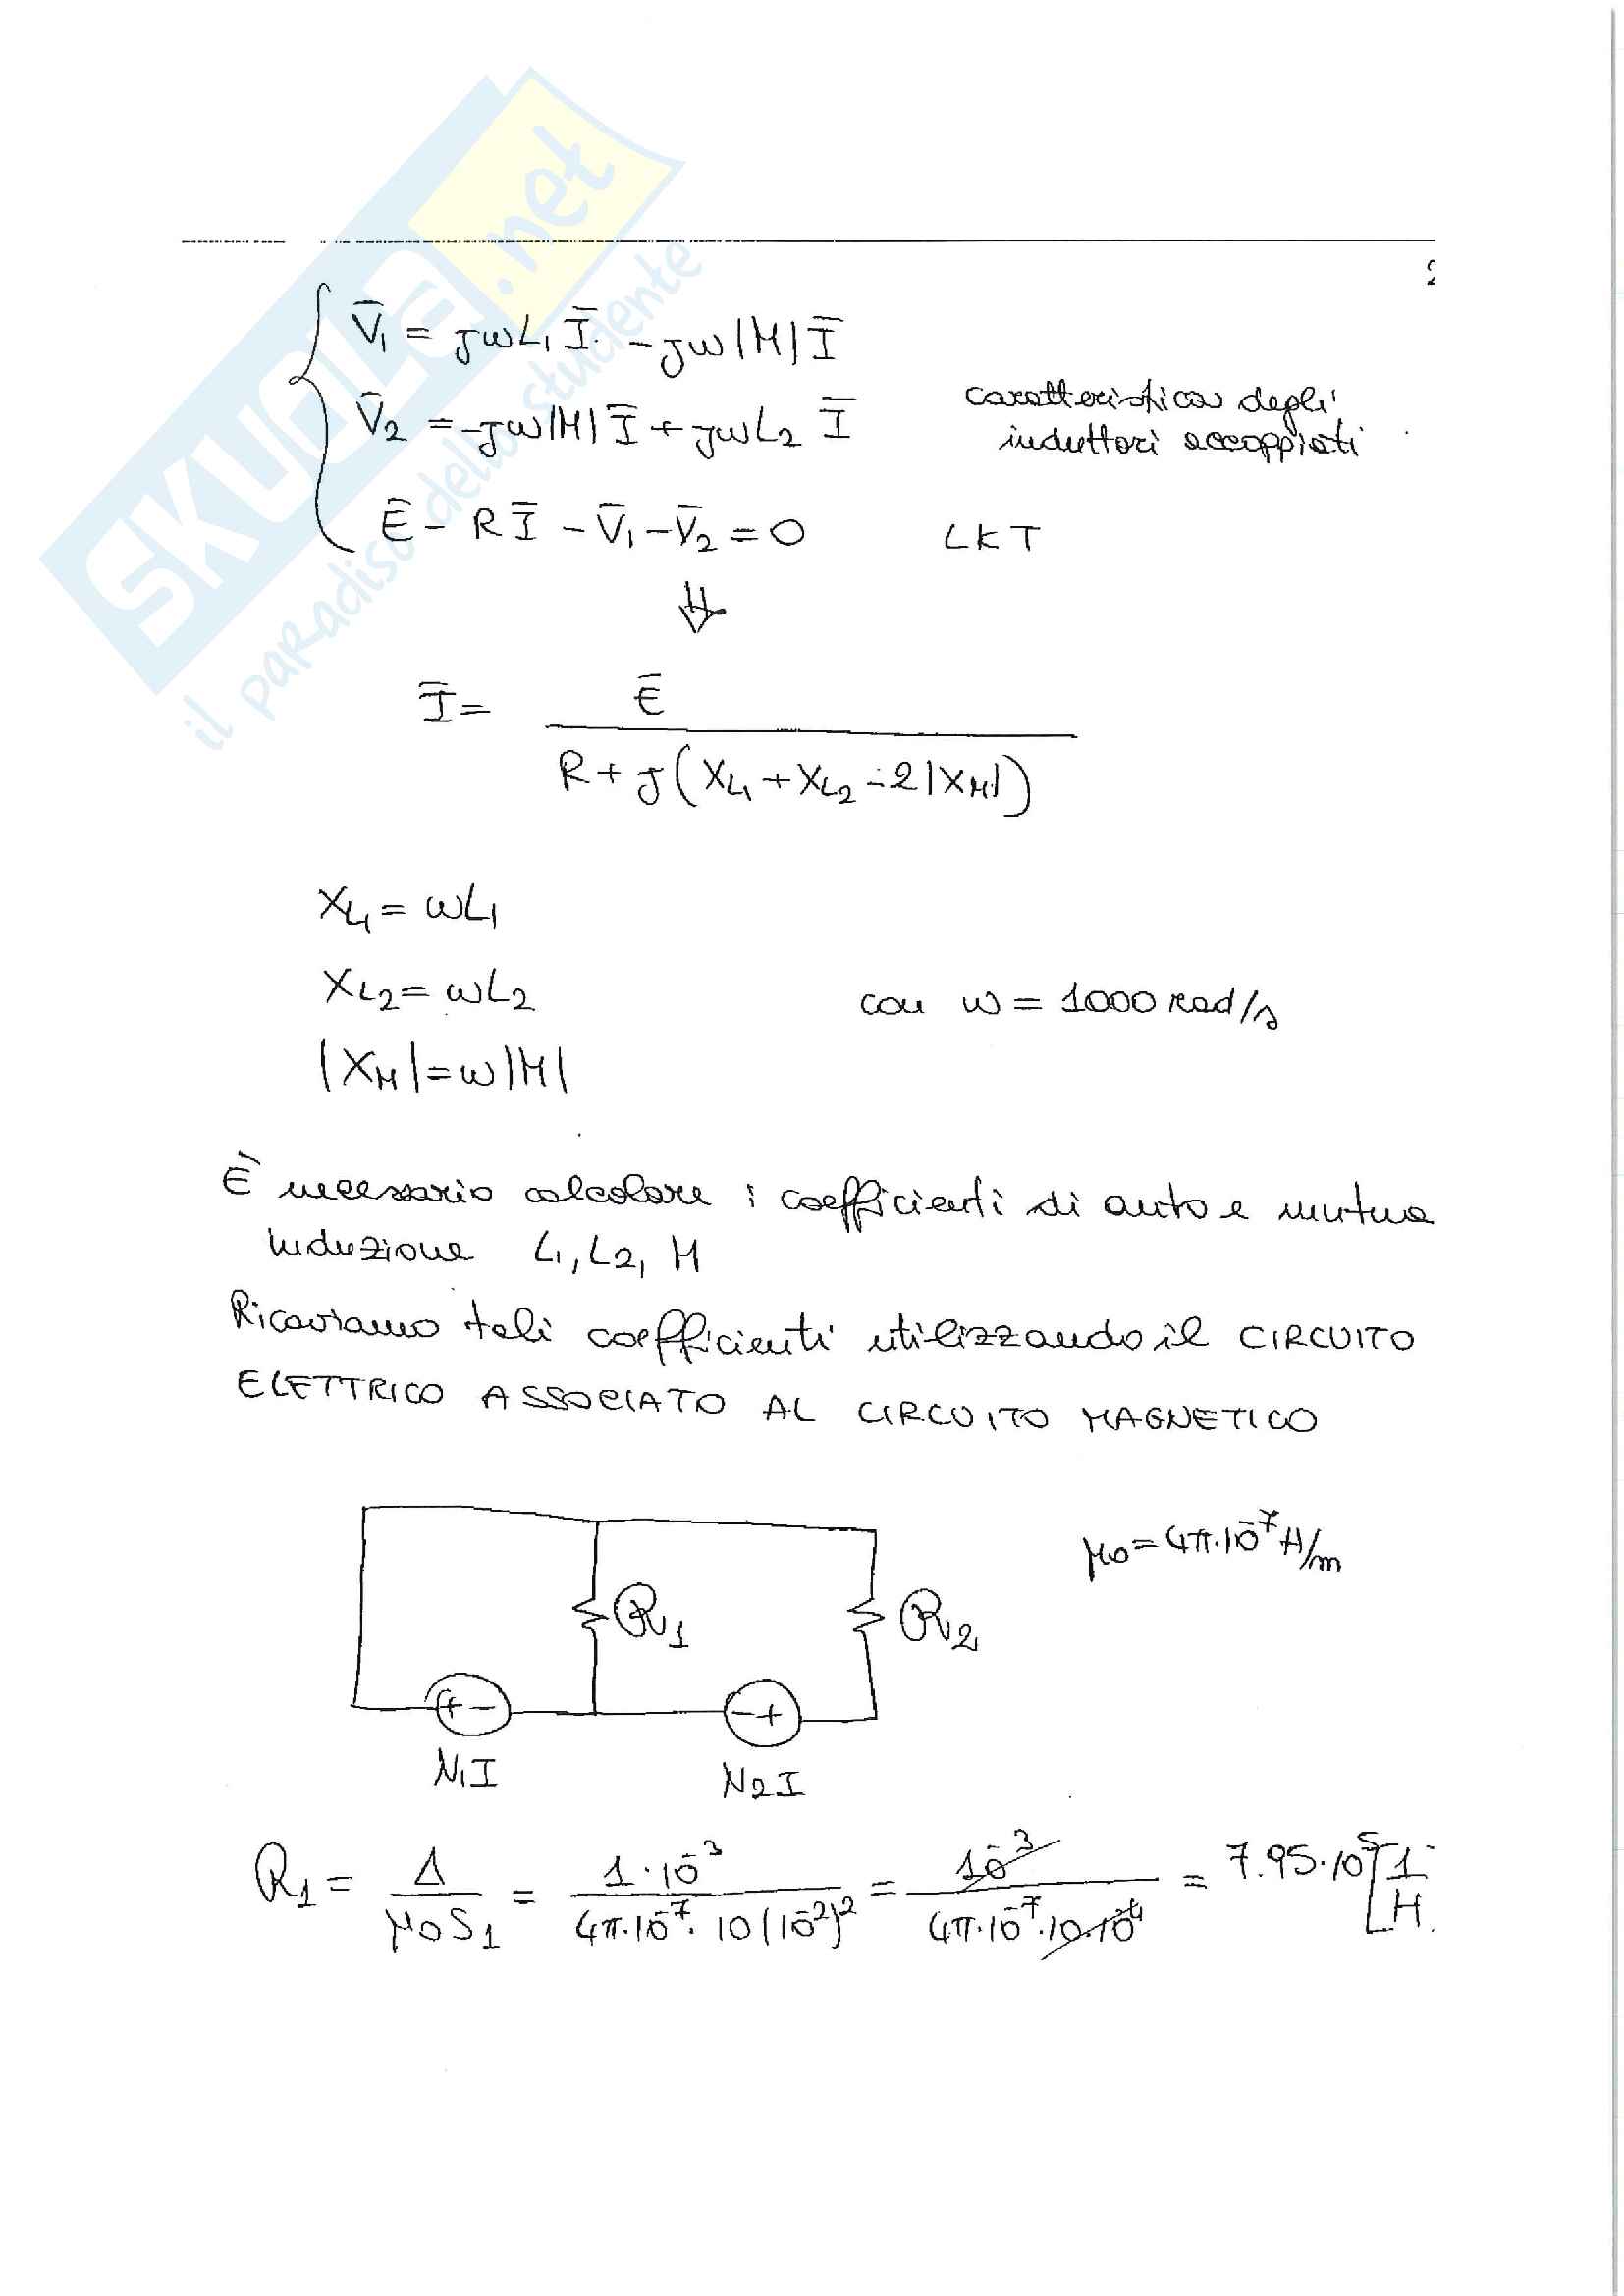 SKUOLA.net
il paradiso dello studente
2
V̄₁ = jωL₁Ī - jω|M|Ī
V̄₂ = -jω|M|Ī + jωL₂Ī
caratteristica degli
induttori accoppiati
Ē - RĪ - V̄₁ - V̄₂ = 0 LKT
⇓
Ī = Ē / (R + j(X_L₁ + X_L₂ - 2|X_M|))
X_L₁ = ωL₁
X_L₂ = ωL₂ con ω = 1000 rad/s
|X_M| = ω|M|
È necessario calcolare i coefficienti di auto e mutua
induzione L₁, L₂, M
Ricaviamo tali coefficienti utilizzando il CIRCUITO
ELETTRICO ASSOCIATO AL CIRCUITO MAGNETICO
μ₀ = 4π·10⁻⁷ H/m
R₁ R₂
+ - - +
N₁I N₂I
R₁ = Δ / (μ₀S₁) = 1·10⁻³ / (4π·10⁻⁷·10(10⁻²)²) = 10⁻³ / (4π·10⁻⁷·10·10⁻⁴) = 7.95·10⁵ [1/H]